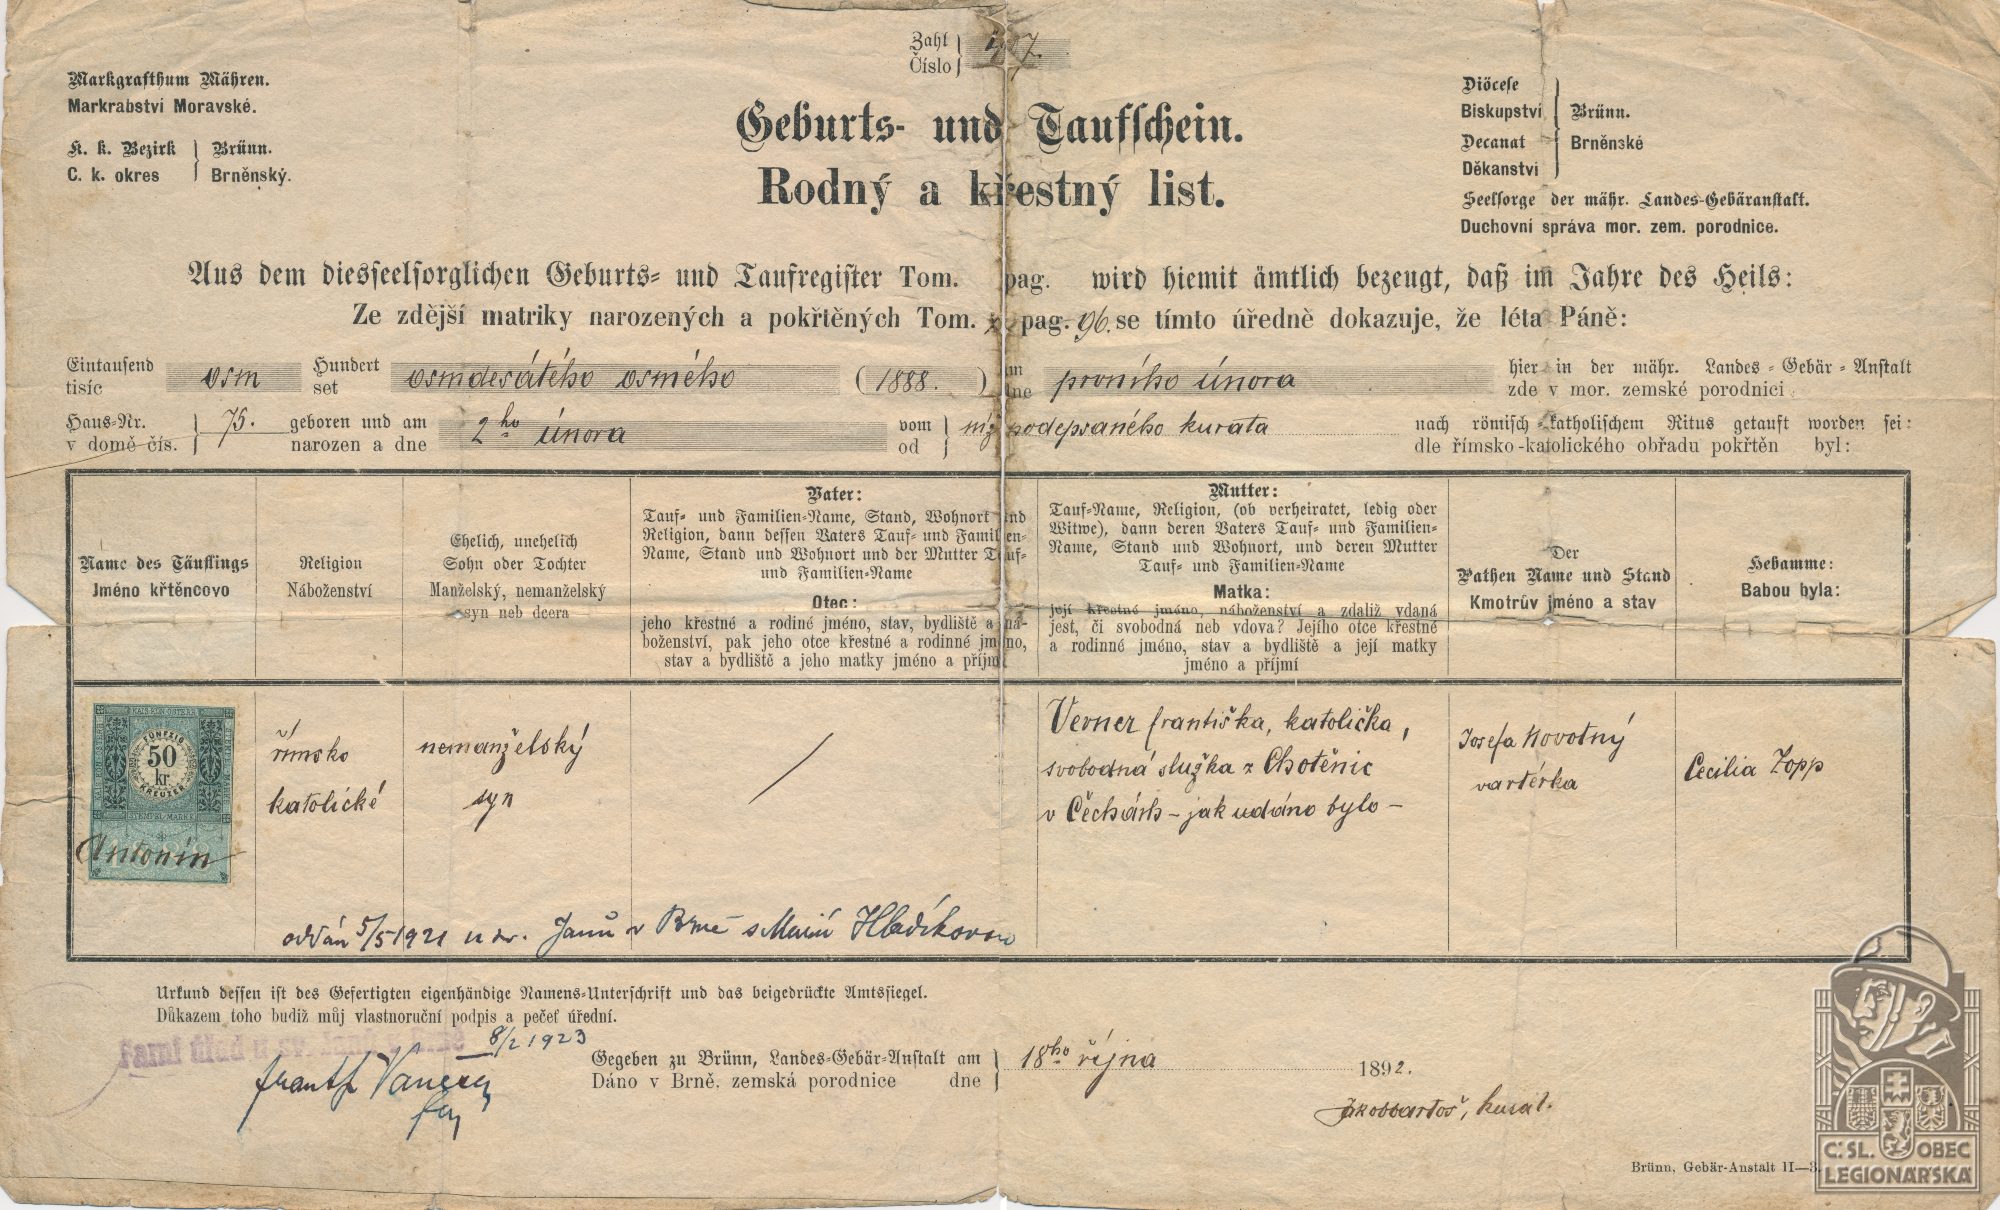 Zahl
Číslo
Markgrafthum Mähren.
Markrabství Moravské.
K. k. Bezirk Brünn.
C. k. okres Brněnský.
Geburts- und Taufschein.
Rodný a křestný list.
Diöcese
Biskupství Brünn.
Decanat Brněnské
Děkanství
Seelsorge der mähr. Landes-Gebäranstalt.
Duchovní správa mor. zem. porodnice.
Aus dem diesseelsorglichen Geburts- und Taufregister Tom. pag. wird hiemit ämtlich bezeugt, daß im Jahre des Heils:
Ze zdější matriky narozených a pokřtěných Tom. pag. 96. se tímto úředně dokazuje, že léta Páně:
Eintausend Hundert hier in der mähr. Landes-Gebär-Anstalt
tisíc osm set osmdesátého osmého (1888.) dne prvního února zde v mor. zemské porodnici
Haus-Nr. 75. geboren und am vom nach römisch-katholischem Ritus getauft worden sei:
v domě čís. narozen a dne 2ho února od níž podepsaného kurata dle římsko-katolického obřadu pokřtěn byl:
Name des Täuflings
Jméno křtěncovo
Religion
Náboženství
Ehelich, unehelich
Sohn oder Tochter
Manželský, nemanželský
syn neb dcera
Vater:
Tauf- und Familien-Name, Stand, Wohnort und
Religion, dann dessen Vaters Tauf- und Familien-
Name, Stand und Wohnort und der Mutter Tauf-
und Familien-Name
Otec:
jeho křestné a rodiné jméno, stav, bydliště a ná-
boženství, pak jeho otce křestné a rodinné jméno,
stav a bydliště a jeho matky jméno a příjmí
Mutter:
Tauf-Name, Religion, (ob verheiratet, ledig oder
Witwe), dann deren Vaters Tauf- und Familien-
Name, Stand und Wohnort, und deren Mutter
Tauf- und Familien-Name
Matka:
její křestné jméno, náboženství a zdaliž vdaná
jest, či svobodná neb vdova? Jejího otce křestné
a rodinné jméno, stav a bydliště a její matky
jméno a příjmí
Der
Pathen Name und Stand
Kmotrův jméno a stav
Hebamme:
Babou byla:
FÜNFZIG
50
kr
KREUZER
STEMPEL MARKE
Antonín
římsko
katolické
nemanželský
syn
Verner františka, katolička,
svobodná služka z Chotěnic
v Čechách – jak udáno bylo –
Josefa Novotný
vartérka
Cecilia Zopp
oddán 5/5 1921 u sv. Janů v Brně s Marií Hladíkovou
Urkund dessen ist des Gefertigten eigenhändige Namens-Unterschrift und das beigedrückte Amtssiegel.
Důkazem toho budiž můj vlastnoruční podpis a pečeť úřední.
8/2 1923
Gegeben zu Brünn, Landes-Gebär-Anstalt am
Dáno v Brně, zemská porodnice dne 18ho října 1892.
kurat.
Brünn, Gebär-Anstalt II—3.
Č. SL. OBEC
LEGIONÁŘSKÁ